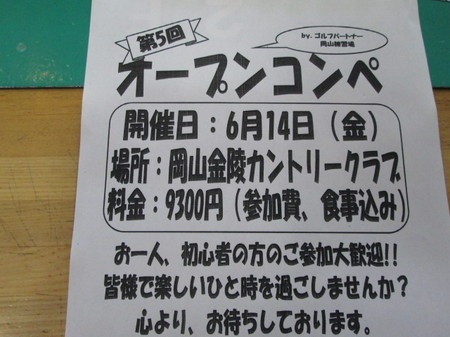 第5回
by.ゴルフパートナー
岡山練習場
オープンコンペ
開催日：6月14日（金）
場所：岡山金陵カントリークラブ
料金：9300円（参加費、食事込み）
お一人、初心者の方のご参加大歓迎!!
皆様で楽しいひと時を過ごしませんか？
心より、お待ちしております。